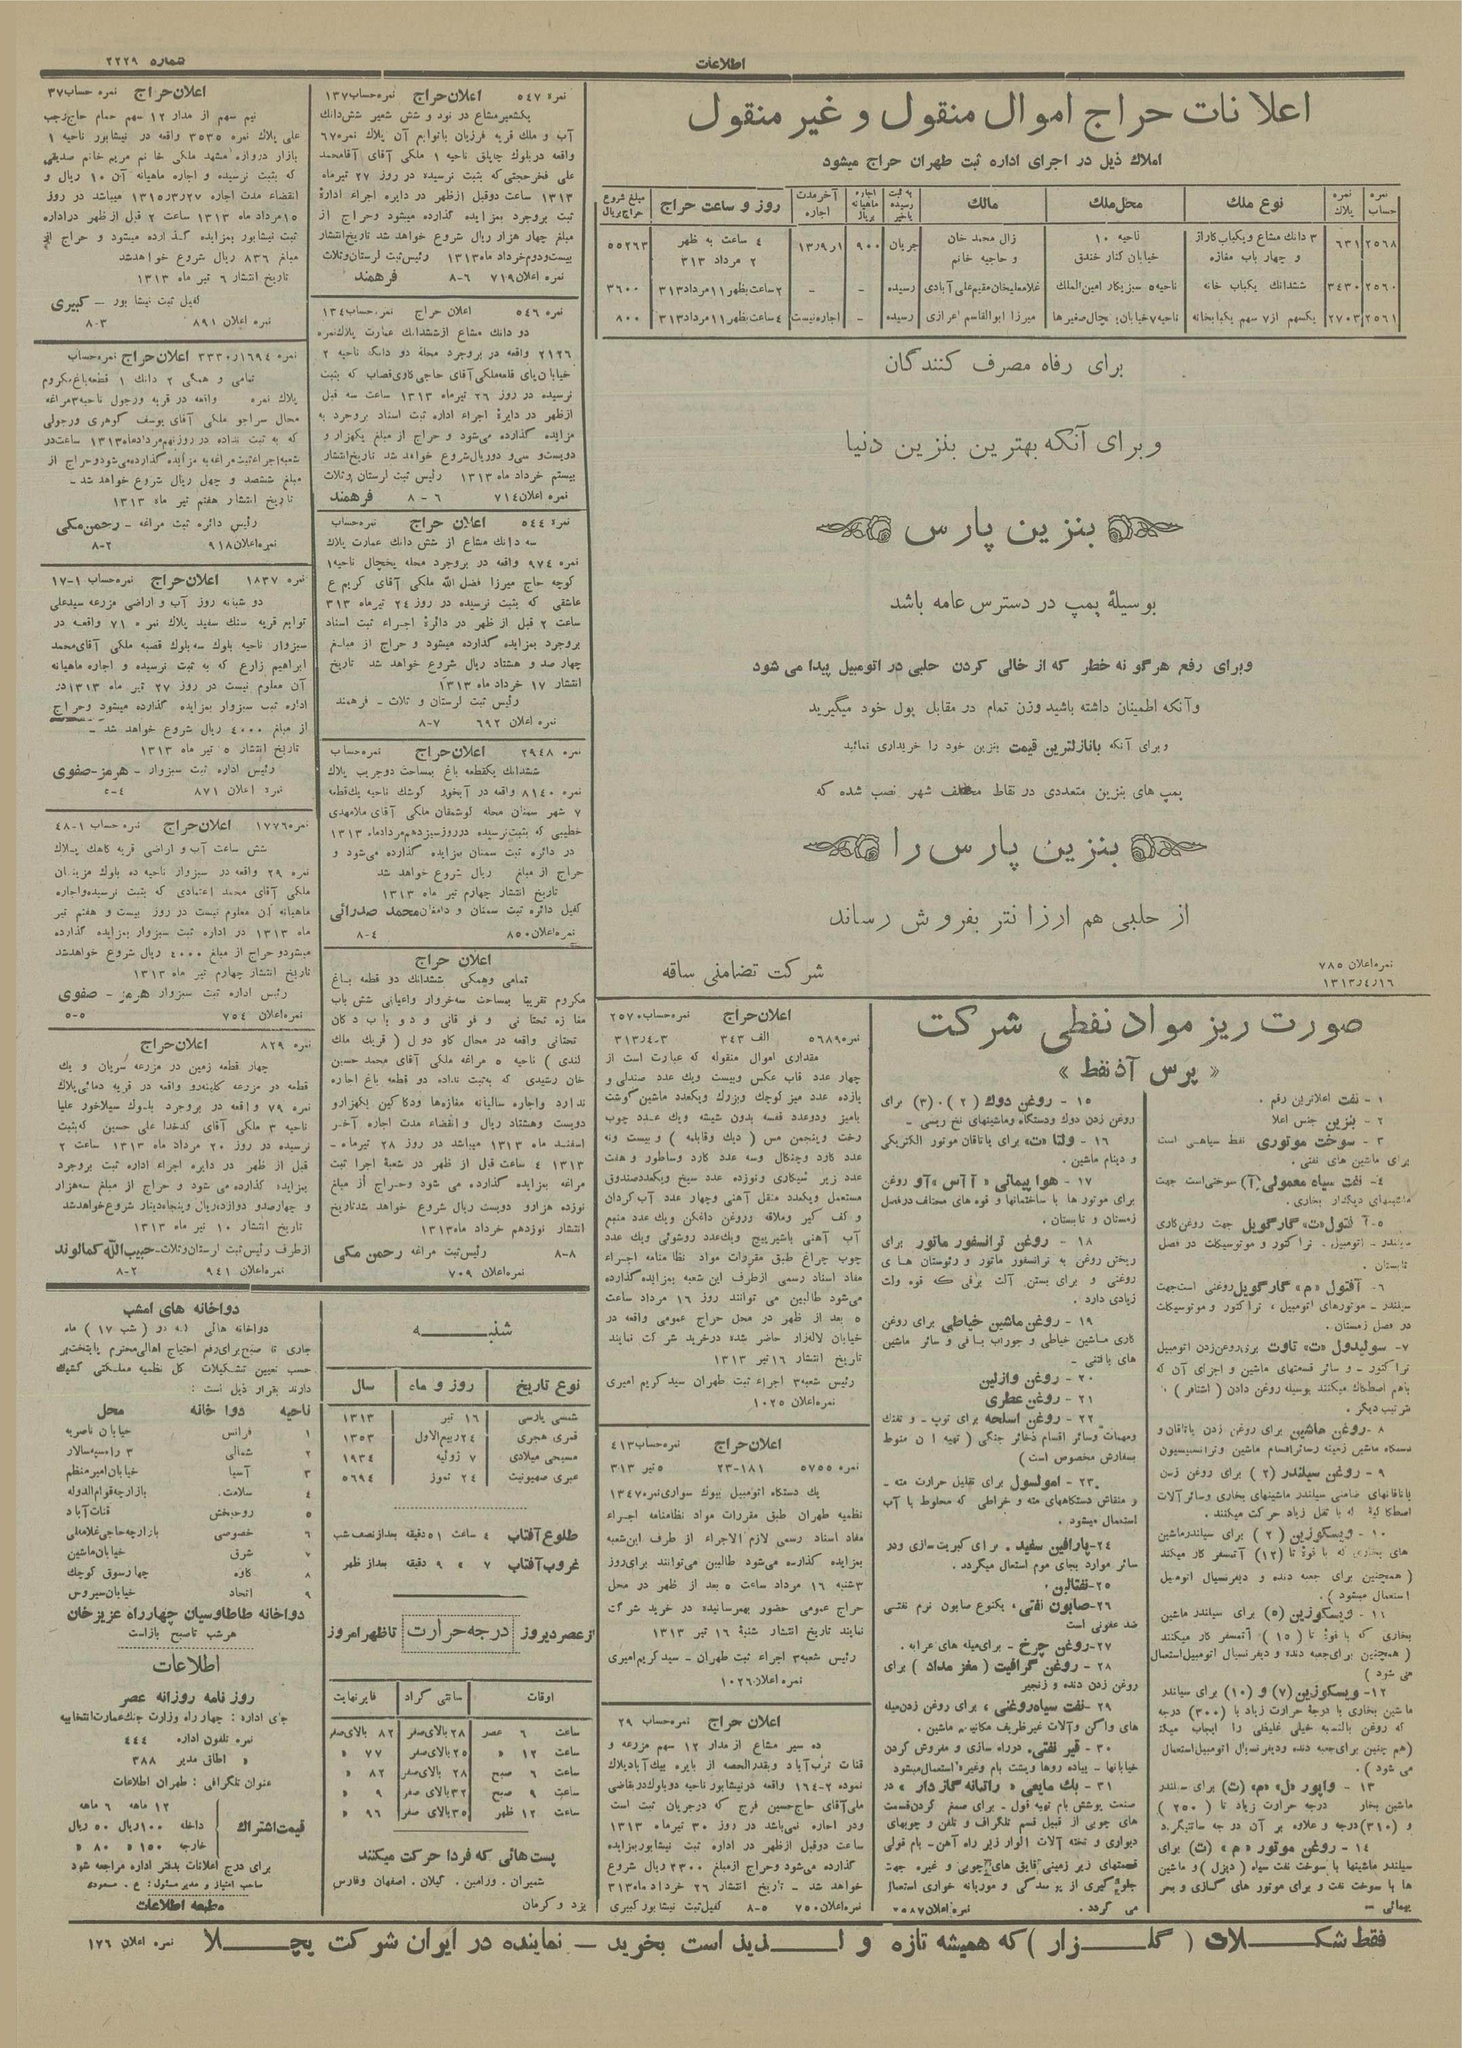 شماره ۲۲۲۹
اطلاعات
اعلانات حراج اموال منقول و غیر منقول
املاك ذیل در اجرای اداره ثبت طهران حراج میشود
نمره حساب | نمره پلاك | نوع ملك | محل ملك | مالك | به ثبت رسیده یا خیر | اجاره ماهیانه بریال | آخر مدت اجاره | روز و ساعت حراج | مبلغ شروع حراج بریال
۲۵۶۸ | ۶۳۱ | ۳ دانك مشاع و یكباب كاراژ و چهار باب مغازه | ناحیه ۱۰ خیابان كنار خندق | زال محمد خان و حاجیه خانم | جریان | ۹۰۰ | ۱ر۹ر۱۳ | ۴ ساعت به ظهر ۲ مرداد ۳۱۳ | ۵۵۲۶۳
۲۵۶۰ | ۳۴۳۰ | ششدانك یكباب خانه | ناحیه ۵ سبزیكار امین الملك | غلامعلیخان مقیم علی آبادی | رسیده | - | - | ۲ ساعت بظهر ۱۱ مرداد ۳۱۳ | ۳۶۰۰
۲۵۶۱ | ۲۷۰۳ | یكسهم از ۷ سهم یكبابخانه | ناحیه ۷ خیابان یخچال صغیرها | میرزا ابوالقاسم اعرازی | رسیده | - | اجاره نیست | ۴ ساعت بظهر ۱۱ مرداد ۳۱۳ | ۸۰۰
برای رفاه مصرف كنندگان
و برای آنكه بهترین بنزین دنیا
بنزین پارس
بوسیلهٔ پمپ در دسترس عامه باشد
و برای رفع هرگونه خطر كه از خالی كردن حلبی در اتومبیل پیدا می شود
و آنكه اطمینان داشته باشید وزن تمام در مقابل پول خود میگیرید
و برای آنكه بانازلترین قیمت بنزین خود را خریداری نمائید
پمپ های بنزین متعددی در نقاط مختلف شهر نصب شده كه
بنزین پارس را
از حلبی هم ارزانتر بفروش رساند
شركت تضامنی ساقه
نمره اعلان ۷۸۵
۱۶ر۴ر۱۳۱۳
صورت ریز مواد نفطی شركت
« پرس آذ نفط »
۱ - نفت اعلاترین رقم .
۲ - بنزین جنس اعلا
۳ - سوخت موتوری نفط سیاهی است
برای ماشین های نفتی .
۴- نفت سیاه معمولی (آ) سوختی است جهت
ماشینهای دیكدار بخاری .
۵- آفتول «ت» گارگویل جهت روغن كاری
سیلندر - اتومبیل . تراكتور و موتوسیكلت در فصل
تابستان .
۶- آفتول «م» گارگویل روغنی است جهت
سیلندر - موتورهای اتومبیل ، تراكتور و موتوسیكلت
در فصل زمستان .
۷- سولیدول «ت» تاوت برای روغن زدن اتومبیل
تراكتور - و سائر قسمتهای ماشین و اجزای آن كه
باهم اصطكاك میكنند بوسیله روغن دادن ( اشتافر )
ترتیب دیگر .
۸ - روغن ماشین برای روغن زدن یاتاقان و
دستگاه ماشین زمینه و سائر اقسام ماشین و ترانسمیسیون
۹ - روغن سیلندر (۲) برای روغن زدن
یاتاقانهای ضامنی سیلندر ماشینهای بخاری و سائر آلات
اصطكاكیه كه با ثقل زیاد حركت میكنند .
۱۰ - ویسكوزین (۲) برای سیلندر ماشین
های بخاری كه با قوهٔ تا (۱۲) آتمسفر كار میكند
( همچنین برای جعبه دنده و دیفرنسیال اتومبیل
استعمال میشود ) .
۱۱ - ویسكوزین (۵) برای سیلندر ماشین
بخاری كه با قوهٔ تا (۱۵) آتمسفر كار میكند
( همچنین برای جعبه دنده و دیفرنسیال اتومبیل استعمال
می شود )
۱۲- ویسكوزین (۷) و (۱۰) برای سیلندر
ماشین بخاری با درجهٔ حرارت زیاد با (۳۰۰) درجه
كه روغن بالنسبه خیلی غلیظی را ایجاب میكند
(هم چنین برای جعبه دنده و دیفرنسیال اتومبیل استعمال
می شود ) .
۱۳ - واپور «ل» «م» (ت) برای سیلندر
ماشین بخار درجه حرارت زیاد تا (۲۵۰)
و (۳۱۰) درجه و علاوه بر آن درجه سانتیگرد
۱۴ - روغن موتور «م» (ت) برای
سیلندر ماشینها با سوخت نفت سیاه (دیزل) و ماشین
ها با سوخت نفت و برای موتور های گازی و بحر
پیمائی -
۱۵ - روغن دوك (۲) . (۳) برای
روغن زدن دوك و دستگاه و ماشینهای نخ ریسی .
۱۶ - ولتا «ت» برای یاتاقان موتور الكتریكی
و دینام ماشین .
۱۷ - هوا پیمائی « آ آس » آو روغن
برای موتور ها با ساختمانها و قوه های مختلف در فصل
زمستان و تابستان .
۱۸ - روغن ترانسفور ماتور برای
ریختن روغن به ترانسفور ماتور و رئوستان های
روغنی و برای بستن آلت برقی كه قوه ولت
زیادی دارد .
۱۹ - روغن ماشین خیاطی برای روغن
كاری ماشین خیاطی و جوراب بافی و سائر ماشین
های بافتنی -
۲۰ - روغن وازلین
۲۱ - روغن عطری
۲۲ - روغن اسلحه برای توپ - و تفنك
ومهمات وسائر اقسام ذخائر جنگی ( تهیه ان منوط
بسفارش مخصوص است )
۲۳ - امولسول برای تقلیل حرارت مته -
و منقاش دستگاههای مته و خراطی كه مخلوط با آب
استعمال میشود .
۲۴- پارافین سفید . برای كبریت سازی ودر
سائر موارد بجای موم استعمال میگردد .
۲۵- نفتالین .
۲۶- صابون نفتی ، یكنوع صابون نرم نفتی
ضد عفونی است
۲۷- روغن چرخ - برای میله های عرابه .
۲۸ - روغن گرافیت ( مغز مداد ) برای
روغن زدن دنده و زنجیر
۲۹ - نفت سیاه روغنی ، برای روغن زدن میله
های واگن و آلات غیر ظریف مكانیه ماشین .
۳۰ - قیر نفتی . در راه سازی و مفروش كردن
خیابانها - پیاده روها و پشت بام وغیره استعمال میشود
۳۱ - بك مایعی « راتبانه گاز دار » در
صنعت پوشش بام تهیه قول - برای صمغ كردن قسمت
های چوبی از قبیل قسم تلگراف و تلفن و چوبهای
دیواری و تخته آلات الوار زیر راه آهن - بام قولی
قسمتهای زیر زمینی قایق های چوبی و غیره جهت
جلوگیری از پوسدگی و موریانه خواری استعمال
می گردد . نمره اعلان ۲۵۸۷
اعلان حراج نمره حساب ۲۵۷۰
نمره ۵۶۸۹ الف ۳۴۳ ۳-۴ر۳۱۳
مقداری اموال منقوله كه عبارت است از
چهار عدد قاب عكس وبیست ویك عدد صندلی و
یازده عدد میز كوچك وبزرك ویكعدد ماشین گوشت
بامیز ودوعدد قفسه بدون شیشه ویك عدد چوب
رخت وپنجمن مس ( دیك وقابلمه ) و بیست ونه
عدد كارد وچنگال وسه عدد كارد وساطور و هفت
عدد زیر سیگاری ونوزده عدد سیخ ویكعدد صندوق
مستعمل ویكعدد منقل آهنی وچهار عدد آب گردان
و كف گیر وملاقه وروغن داغكن ویك عدد منبع
آب آهنی باشیرپیچ ویكعدد روشوئی ویك عدد
چوب چراغ طبق مقررات مواد نظامنامه اجراء
مفاد اسناد رسمی ازطرف این شعبه بمزایده گذارده
می‌شود طالبین می توانند روز ۱۶ مرداد ساعت
۵ بعد از ظهر در محل حراج عمومی واقعه در
خیابان لاله‌زار حاضر شده درخرید شركت نمایند
تاریخ انتشار ۱۶ تیر ۱۳۱۳
رئیس شعبه ۳ اجراء ثبت طهران سید كریم امیری
نمره اعلان ۱۰۲۵
اعلان حراج نمره حساب ۴۱۳
نمره ۵۷۵۵ ۱۸۱-۲۳ ۵ تیر ۳۱۳
یك دستگاه اتومبیل بیوك سواری نمره ۱۳۴۷
نظمیه طهران طبق مقررات مواد نظامنامه اجراء
مفاد اسناد رسمی لازم الاجراء از طرف این شعبه
بمزایده گذارده می‌شود طالبین می‌توانند برای روز
۳شنبه ۱۶ مرداد ساعت ۵ بعد از ظهر در محل
حراج عمومی حضور بهمرسانیده در خرید شركت
نمایند تاریخ انتشار شنبهٔ ۱۶ تیر ۱۳۱۳
رئیس شعبه ۳ اجراء ثبت طهران - سید كریم امیری
نمره اعلان ۱۰۲۶
اعلان حراج نمره حساب ۲۹
ده سیر مشاع از مدار ۱۲ سهم مزرعه و
قنات ترب آباد و بقدر الحصه از بایره بیك آباد پلاك
نموده ۲-۱۶۴ واقعه درنیشابور ناحیه دوبلوك درقاضی
ملی آقای حاج حسین فرج كه درجریان ثبت است
ودر اجاره نمی‌باشد در روز ۳۰ تیر ماه ۱۳۱۳
ساعت دوقبل ازظهر در اداره ثبت نیشابور بمزایده
گذارده می‌شود وحراج ازمبلغ ۲۳۰۰ ریال شروع
خواهد شد - تاریخ انتشار ۲۶ خرداد ماه ۳۱۳
نمره اعلان ۷۵۰ ۵-۸ كفیل ثبت نیشابور كبیری
نمره ۵۴۷ اعلان حراج نمره حساب ۱۳۷
یكشعیر مشاع در نود و شش شعیر شش دانك
آب و ملك قریه فرزیان باتوابع آن پلاك نمره ۶۷
واقعه دربلوك چاپلق ناحیه ۱ ملكی آقای آقامحمد
علی فخر حجتی كه بثبت نرسیده در روز ۲۷ تیرماه
۱۳۱۳ ساعت دوقبل ازظهر در دایره اجراء ادارهٔ
ثبت بروجرد بمزایده گذارده میشود وحراج از
مبلغ چهار هزار ریال شروع خواهد شد تاریخ انتشار
بیست‌ودوم خرداد ماه ۱۳۱۳ رئیس ثبت لرستان وثلاث
نمره اعلان ۷۱۹ ۶-۸ فرهمند
نمره ۵۴۶ اعلان حراج نمره حساب ۱۳۴
دو دانك مشاع از ششدانك عمارت پلاك نمره
۲۱۲۶ واقعه در بروجرد محلهٔ دو دانگه ناحیه ۲
خیابان پای قلعه ملكی آقای حاجی گاری قصاب كه بثبت
نرسیده در روز ۲۶ تیرماه ۱۳۱۳ ساعت سه قبل
ازظهر در دایرهٔ اجراء اداره ثبت اسناد بروجرد به
مزایده گذارده می‌شود و حراج از مبلغ یكهزار و
دویست و سی و دو ریال شروع خواهد شد تاریخ انتشار
بیستم خرداد ماه ۱۳۱۳ رئیس ثبت لرستان وثلاث
نمره اعلان ۷۱۴ ۶ - ۸ فرهمند
نمره ۵۴۴ اعلان حراج نمره حساب
سه دانك مشاع از شش دانك عمارت پلاك
نمره ۹۷۴ واقعه در بروجرد محله یخچال ناحیه ۱
كوچه حاج میرزا فضل الله ملكی آقای كریم ع
عاشقی كه بثبت نرسیده در روز ۲۴ تیر ماه ۳۱۳
ساعت ۲ قبل از ظهر در دائرهٔ اجراء ثبت اسناد
بروجرد بمزایده گذارده میشود و حراج از مبلغ
چهار صد و هشتاد ریال شروع خواهد شد تاریخ
انتشار ۱۷ خرداد ماه ۱۳۱۳
رئیس ثبت لرستان و ثلاث - فرهمند
نمره اعلان ۶۹۲ ۷-۸
نمره ۲۹۴۸ اعلان حراج نمره حساب
ششدانك یكقطعه باغ بمساحت دوجریب پلاك
نمره ۸۱۴۰ واقعه در آبخور كوشك ناحیه یك قطعه
۷ شهر سمنان محله كوشمغان ملكی آقای ملامهدی
خطیبی كه بثبت نرسیده درروز سیزدهم مرداد ماه ۱۳۱۳
در دائره ثبت سمنان بمزایده گذارده می‌شود و
حراج از مبلغ ریال شروع خواهد شد
تاریخ انتشار چهارم تیر ماه ۱۳۱۳
كفیل دائره ثبت سمنان و دامغان محمد صدرائی
نمره اعلان ۸۵۰ ۴-۸
اعلان حراج
تمامی وهمگی ششدانك دو قطعه باغ
مكروم تقریبا بمساحت سه خروار واعیانی شش باب
مغازه تحتانی و فوقانی و دو باب دكان
تحتانی واقعه در محال گاو دول ( قریك ملك
كندی ) ناحیه ۵ مراغه ملكی آقای محمد حسین
خان رشیدی كه به‌ثبت نداده دو قطعه باغ اجاره
ندارد واجاره سالیانه مغازه‌ها ودكاكین یكهزارو
دویست وهشتاد ریال و انقضاء مدت اجاره آخر
اسفند ماه ۱۳۱۳ میباشد در روز ۲۸ تیرماه -
۱۳۱۳ ۴ ساعت قبل از ظهر در شعبهٔ اجرا ثبت
مراغه بمزایده گذارده می شود وحراج از مبلغ
نوزده هزارو دویست ریال شروع خواهد شد تاریخ
انتشار نوزدهم خرداد ماه ۱۳۱۳
۸-۸ رئیس ثبت مراغه رحمن مكی
نمره اعلان ۷۰۹
اعلان حراج نمره حساب ۳۷
نیم سهم از مدار ۱۲ سهم حمام حاج رجب
علی پلاك نمره ۳۵۳۵ واقعه در نیشابور ناحیه ۱
بازار دروازه مشهد ملكی خانم مریم خانم صدیقی
كه بثبت نرسیده و اجاره ماهیانه آن ۱۰ ریال و
انقضاء مدت اجاره ۲۷ر۳ر۱۳۱۵ میباشد در روز
۱۵ مرداد ماه ۱۳۱۳ ساعت ۲ قبل از ظهر در اداره
ثبت نیشابور بمزایده گذارده میشود و حراج از
مبلغ ۸۳۶ ریال شروع خواهد شد
تاریخ انتشار ۶ تیر ماه ۱۳۱۳
كفیل ثبت نیشابور - كبیری
نمره اعلان ۸۹۱ ۳-۸
نمره ۱۶۹۴ر۳۳۳۰ اعلان حراج نمره حساب
تمامی و همگی ۲ دانك ۱ قطعه باغ مكروم
پلاك نمره واقعه در قریه ورجول ناحیه ۳مراغه
محال سراجو ملكی آقای یوسف گوهری ورجولی
كه به ثبت نداده در روز نهم مرداد ماه ۱۳۱۳ ساعت در
شعبه اجراء ثبت مراغه به مزایده گذارده می‌شود وحراج از
مبلغ ششصد و چهل ریال شروع خواهد شد -
تاریخ انتشار هفتم تیر ماه ۱۳۱۳
رئیس دائره ثبت مراغه - رحمن مكی
نمره اعلان ۹۱۸ ۲-۸
نمره ۱۸۳۷ اعلان حراج نمره حساب ۱-۱۷
دو شبانه روز آب و اراضی مزرعه سید علی
توابع قریه سنك سفید پلاك نمره ۷۱ واقعه در
سبزوار ناحیه بلوك سه بلوك قصبه ملكی آقای محمد
ابراهیم زارع كه به ثبت نرسیده و اجاره ماهیانه
آن معلوم نیست در روز ۲۷ تیر ماه ۱۳۱۳ در
اداره ثبت سبزوار بمزایده گذارده میشود وحراج
از مبلغ ۴۰۰۰ ریال شروع خواهد شد -
تاریخ انتشار ۵ تیر ماه ۱۳۱۳
رئیس اداره ثبت سبزوار - هرمز-صفوی
نمره اعلان ۸۷۱ ۴-۵
نمره ۱۷۷۶ اعلان حراج نمره حساب ۱-۴۸
شش ساعت آب و اراضی قریه كاهك پلاك
نمره ۲۹ واقعه در سبزوار ناحیه ده بلوك مزینان
ملكی آقای محمد اعتمادی كه بثبت نرسیده واجاره
ماهیانه آن معلوم نیست در روز بیست و هفتم تیر
ماه ۱۳۱۳ در اداره ثبت سبزوار بمزایده گذارده
میشود و حراج از مبلغ ۴۰۰۰ ریال شروع خواهد شد
تاریخ انتشار چهارم تیر ماه ۱۳۱۳
رئیس اداره ثبت سبزوار هرمز - صفوی
نمره اعلان ۷۵۴ ۵-۵
نمره ۸۲۹ اعلان حراج
چهار قطعه زمین در مزرعه سریان و یك
قطعه در مزرعه كلینه رو واقعه در قریه دهائی پلاك
نمره ۷۹ واقعه در بروجرد بلوك سیلاخور علیا
ناحیه ۳ ملكی آقای كدخدا علی حسین كه بثبت
نرسیده در روز ۲۰ مرداد ماه ۱۳۱۳ ساعت ۲
قبل از ظهر در دایره اجراء اداره ثبت بروجرد
بمزایده گذارده می شود و حراج از مبلغ سه‌هزار
و چهارصدو دوازده ریال و پنجاه دینار شروع خواهد شد
تاریخ انتشار ۱۰ تیر ماه ۱۳۱۳
ازطرف رئیس ثبت لرستان وثلاث - حبیب الله كمالوند
نمره اعلان ۹۴۱ ۲-۸
شنبه
نوع تاریخ | روز و ماه | سال
شمسی پارسی | ۱۶ تیر | ۱۳۱۳
قمری هجری | ۲۴ ربیع الاول | ۱۳۵۳
مسیحی میلادی | ۷ ژوئیه | ۱۹۳۴
عبری صهیونیت | ۲۴ تموز | ۵۶۹۴
طلوع آفتاب ۴ ساعت ۵۱ دقیقه بعد از نصف شب
غروب آفتاب ۷ « ۹ دقیقه بعد از ظهر
از عصر دیروز درجه حرارت تا ظهر امروز
اوقات | سانتی گراد | فارنهایت
ساعت ۶ عصر | ۲۸ بالای صفر | ۸۲ بالای صفر
ساعت ۱۲ « | ۲۵ بالای صفر | ۷۷ «
ساعت ۶ صبح | ۲۸ بالای صفر | ۸۲ «
ساعت ۹ صبح | ۳۲ بالای صفر | ۹ «
ساعت ۱۲ ظهر | ۳۵ بالای صفر | ۹۶ «
پست هائی كه فردا حركت میكنند
شمیران . ورامین . گیلان . اصفهان وفارس
یزد و كرمان
دواخانه های امشب
دواخانه هائی كه در ( شب ۱۷ ) ماه
جاری تا صبح برای رفع احتیاج اهالی محترم پایتخت بر
حسب تعیین تشكیلات كل نظمیه مملكتی كشیك
دارند بقرار ذیل است :
ناحیه دوا خانه محل
۱ فرانس خیابان ناصریه
۲ شمالی ۳ راه سپهسالار
۳ آسیا خیابان امیر منظم
۴ سلامت . بازارچه قوام الدوله
۵ روحبخش قنات آباد
۶ خصوصی بازارچه حاجی غلامعلی
۷ شرق خیابان ماشین
۸ كاوه چهار سوق كوچك
۹ اتحاد خیابان سیروس
دواخانه طاطاوسیان چهارراه عزیزخان
هر شب تا صبح باز است
اطلاعات
روز نامه روزانه عصر
جای اداره : چهار راه وزارت جنك عمارت انتخابیه
نمره تلفون اداره ۴۴۴
« اطاق مدیر ۳۸۸
عنوان تلگرافی : طهران اطلاعات
۱۲ ماهه ۶ ماهه
قیمت اشتراك داخله ۱۰۰ ریال ۵۰ ریال
خارجه ۱۵۰ « ۸۰ «
برای درج اعلانات بدفتر اداره مراجعه شود
صاحب امتیاز و مدیر مسئول : ع . مسعودی
مطبعه اطلاعات
فقط شكلات ( گلزار ) كه همیشه تازه و لذیذ است بخرید - نماینده در ایران شركت یچلا نمره اعلان ۱۷۶